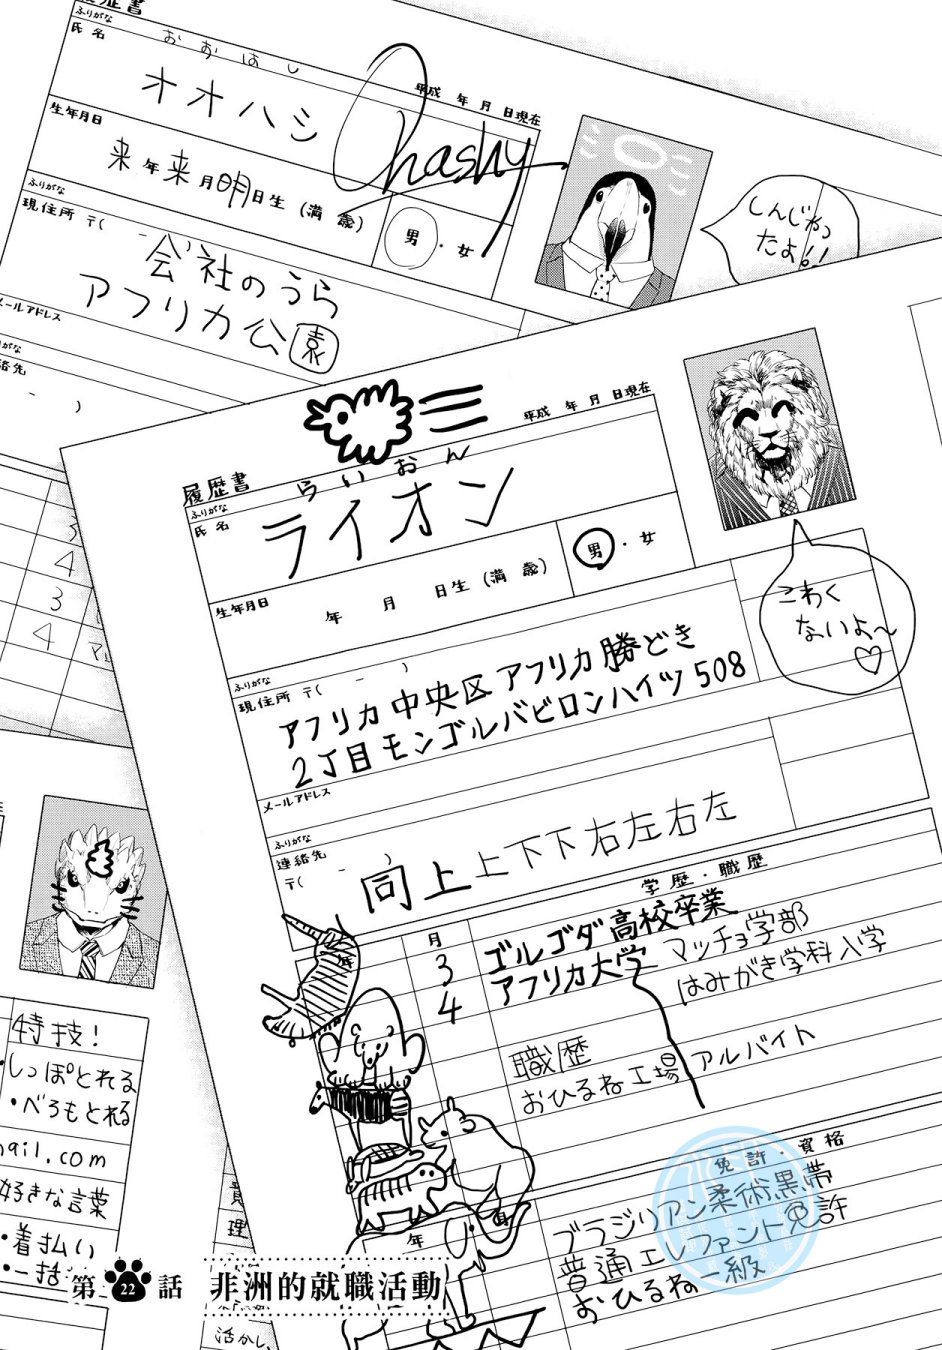 履歴書
ふりがな
おおはし
氏名
オオハシ
Ohashy
平成 年 月 日現在
生年月日
来年来月明日生 (満 歳)
男・女
ふりがな
現住所 〒( - )
会社のうら
アフリカ公園
メールアドレス
ふりがな
連絡先
- )
しんじゃっ
たよ!!
3
4
3
4
履歴書
平成 年 月 日現在
ふりがな
らいおん
氏名
ライオン
生年月日
年 月 日生 (満 歳)
男・女
ふりがな
現住所 〒( - )
アフリカ中央区アフリカ勝どき
2丁目モンゴルバビロンハイツ508
こわく
ないよ〜♡
メールアドレス
ふりがな
連絡先
〒( - )
同上上下下右左右左
学歴・職歴
年
月
3 ゴルゴダ高校卒業
4 アフリカ大学 マッチョ学部
はみがき学科入学
職歴
おひるね工場 アルバイト
年
月
免許・資格
ブラジリアン柔術黒帯
普通エレファント免許
おひるね一級
特技!
・しっぽとれる
・べろもとれる
ail.com
好きな言葉
・着払い
・一括
理
活かし、
第22話 非洲的就職活動